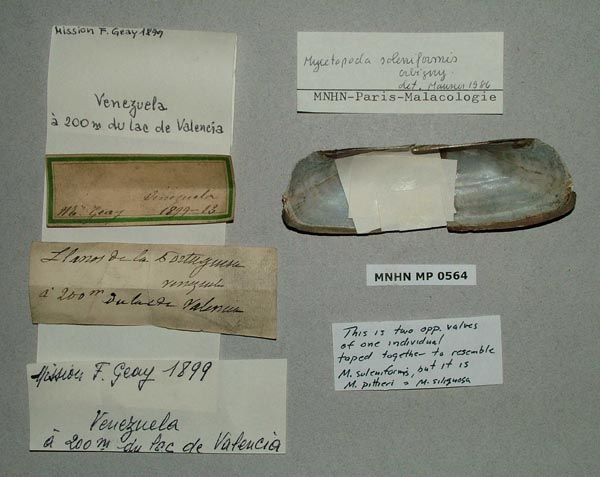 Mission F. Geay 1899
Venezuela
à 200m du lac de Valencia
Venezuela
Mr Geay 1899-13
Llanos de la Portuguesa
venezuela
à 200m du lac de Valencia
Mission F. Geay 1899
Venezuela
à 200m du lac de Valencia
Mycetopoda soleniformis
orbigny
det. Mansur 1986
MNHN-Paris-Malacologie
MNHN MP 0564
This is two opp. valves
of one individual
taped together to resemble
M. soleniformis, but it is
M. pittieri = M. siliquosa